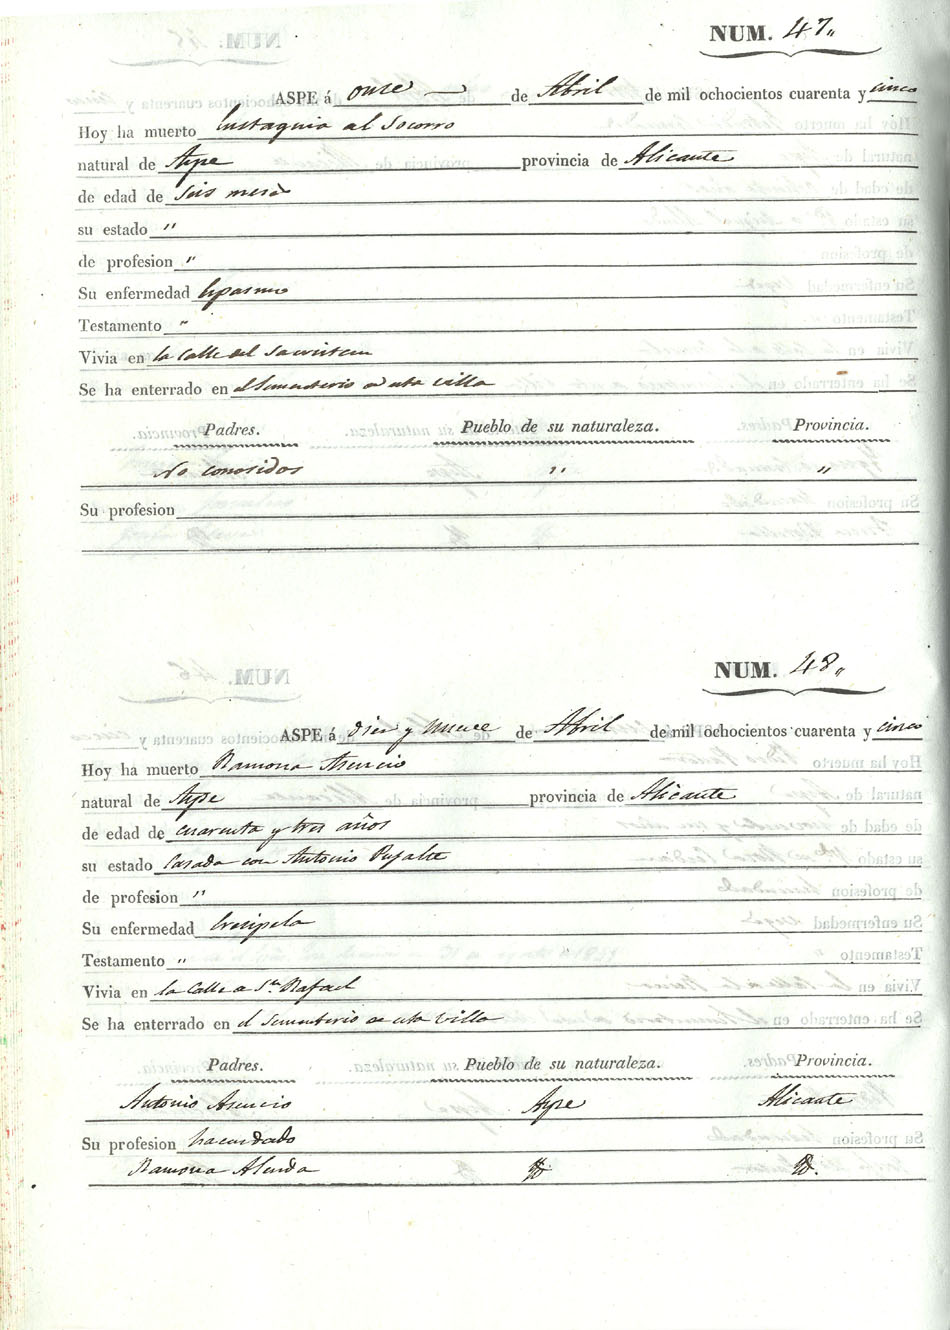 NUM. 47„
ASPE á onse de Abril de mil ochocientos cuarenta y cinco
Hoy ha muerto Eustaquio al Socorro
natural de Aspe provincia de Alicante
de edad de seis meses
su estado "
de profesion "
Su enfermedad Espasmo
Testamento "
Vivia en la Calle del
Se ha enterrado en el Sementerio de esta villa
Padres. Pueblo de su naturaleza. Provincia.
No conosidos " "
Su profesion
NUM. 48„
ASPE á Dies y nueve de Abril de mil ochocientos cuarenta y cinco
Hoy ha muerto Ramona Asencio
natural de Aspe provincia de Alicante
de edad de cuarenta y tres años
su estado Casada con Antonio Pujalte
de profesion "
Su enfermedad Erecipela
Testamento "
Vivia en la Calle a Sn. Rafael
Se ha enterrado en el Sementerio de esta villa
Padres. Pueblo de su naturaleza. Provincia.
Antonio Asencio Aspe Alicante
Su profesion hacendado
Ramona Alenda Yd. Yd.